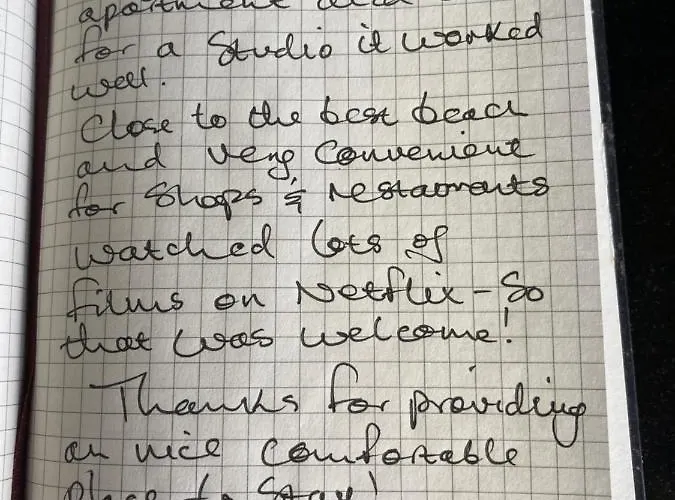 apartment and
for a Studio it worked
well.
Close to the best beach
and very convenient
for Shops & restaurants
watched lots of
films on Netflix - So
that was welcome!
Thanks for providing
an nice comfortable
place to stay!